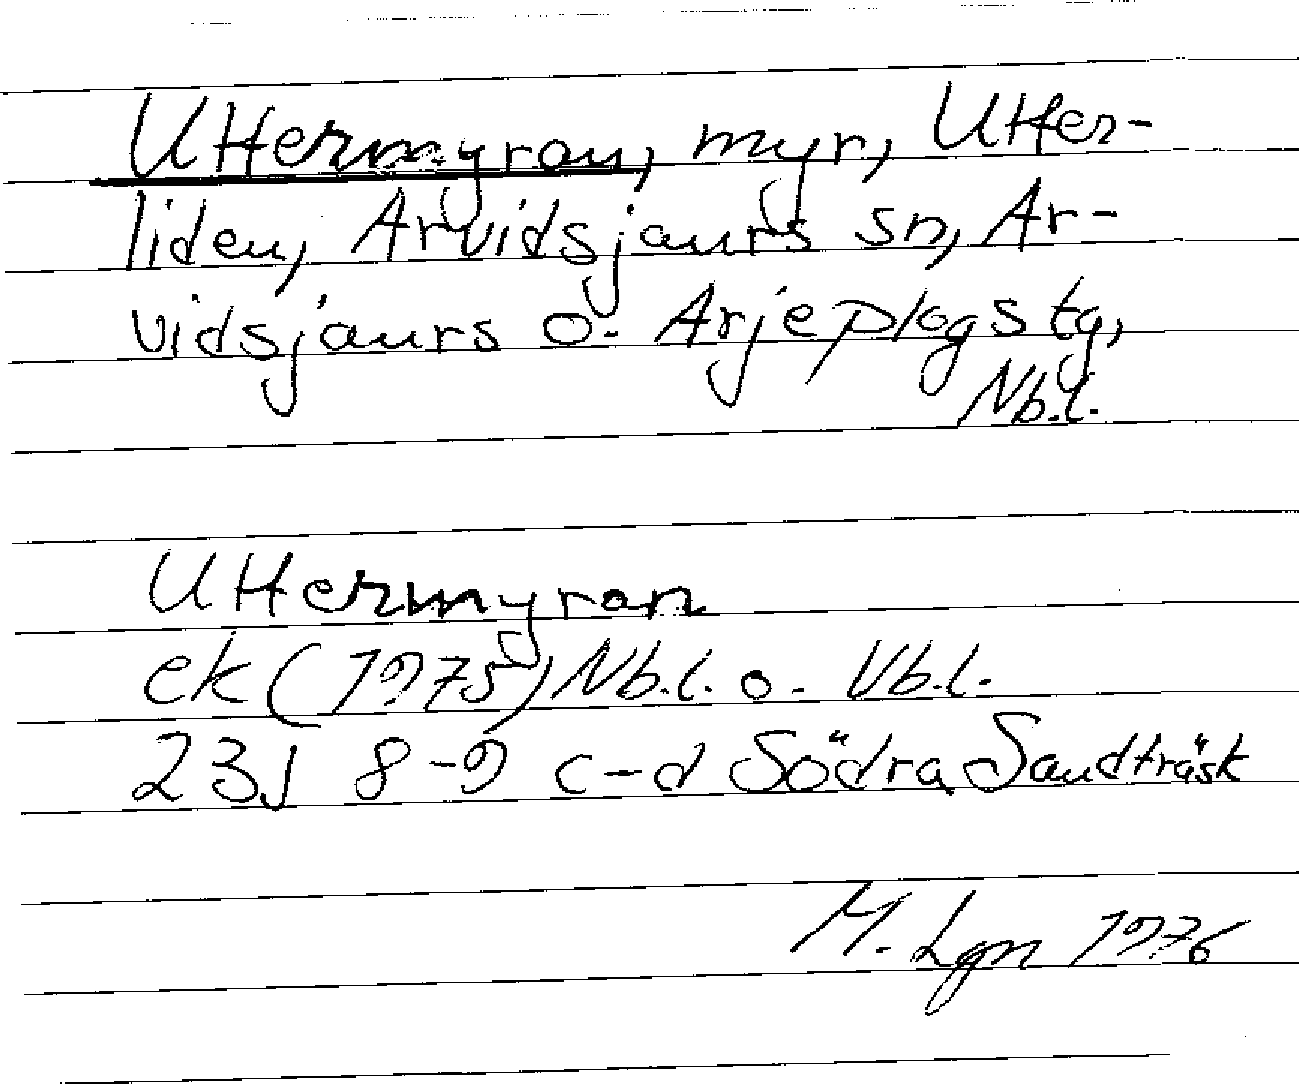 Uttermyran, myr, Utter-
liden, Arvidsjaurs sn, Ar-
vidsjaurs o. Arjeplogs tg,
Nb.l.
Uttermyran
ek (1975) Nb.l. o. Vb.l.
23J 8-9 c-d Södra Sandträsk
M. Lgn 1976